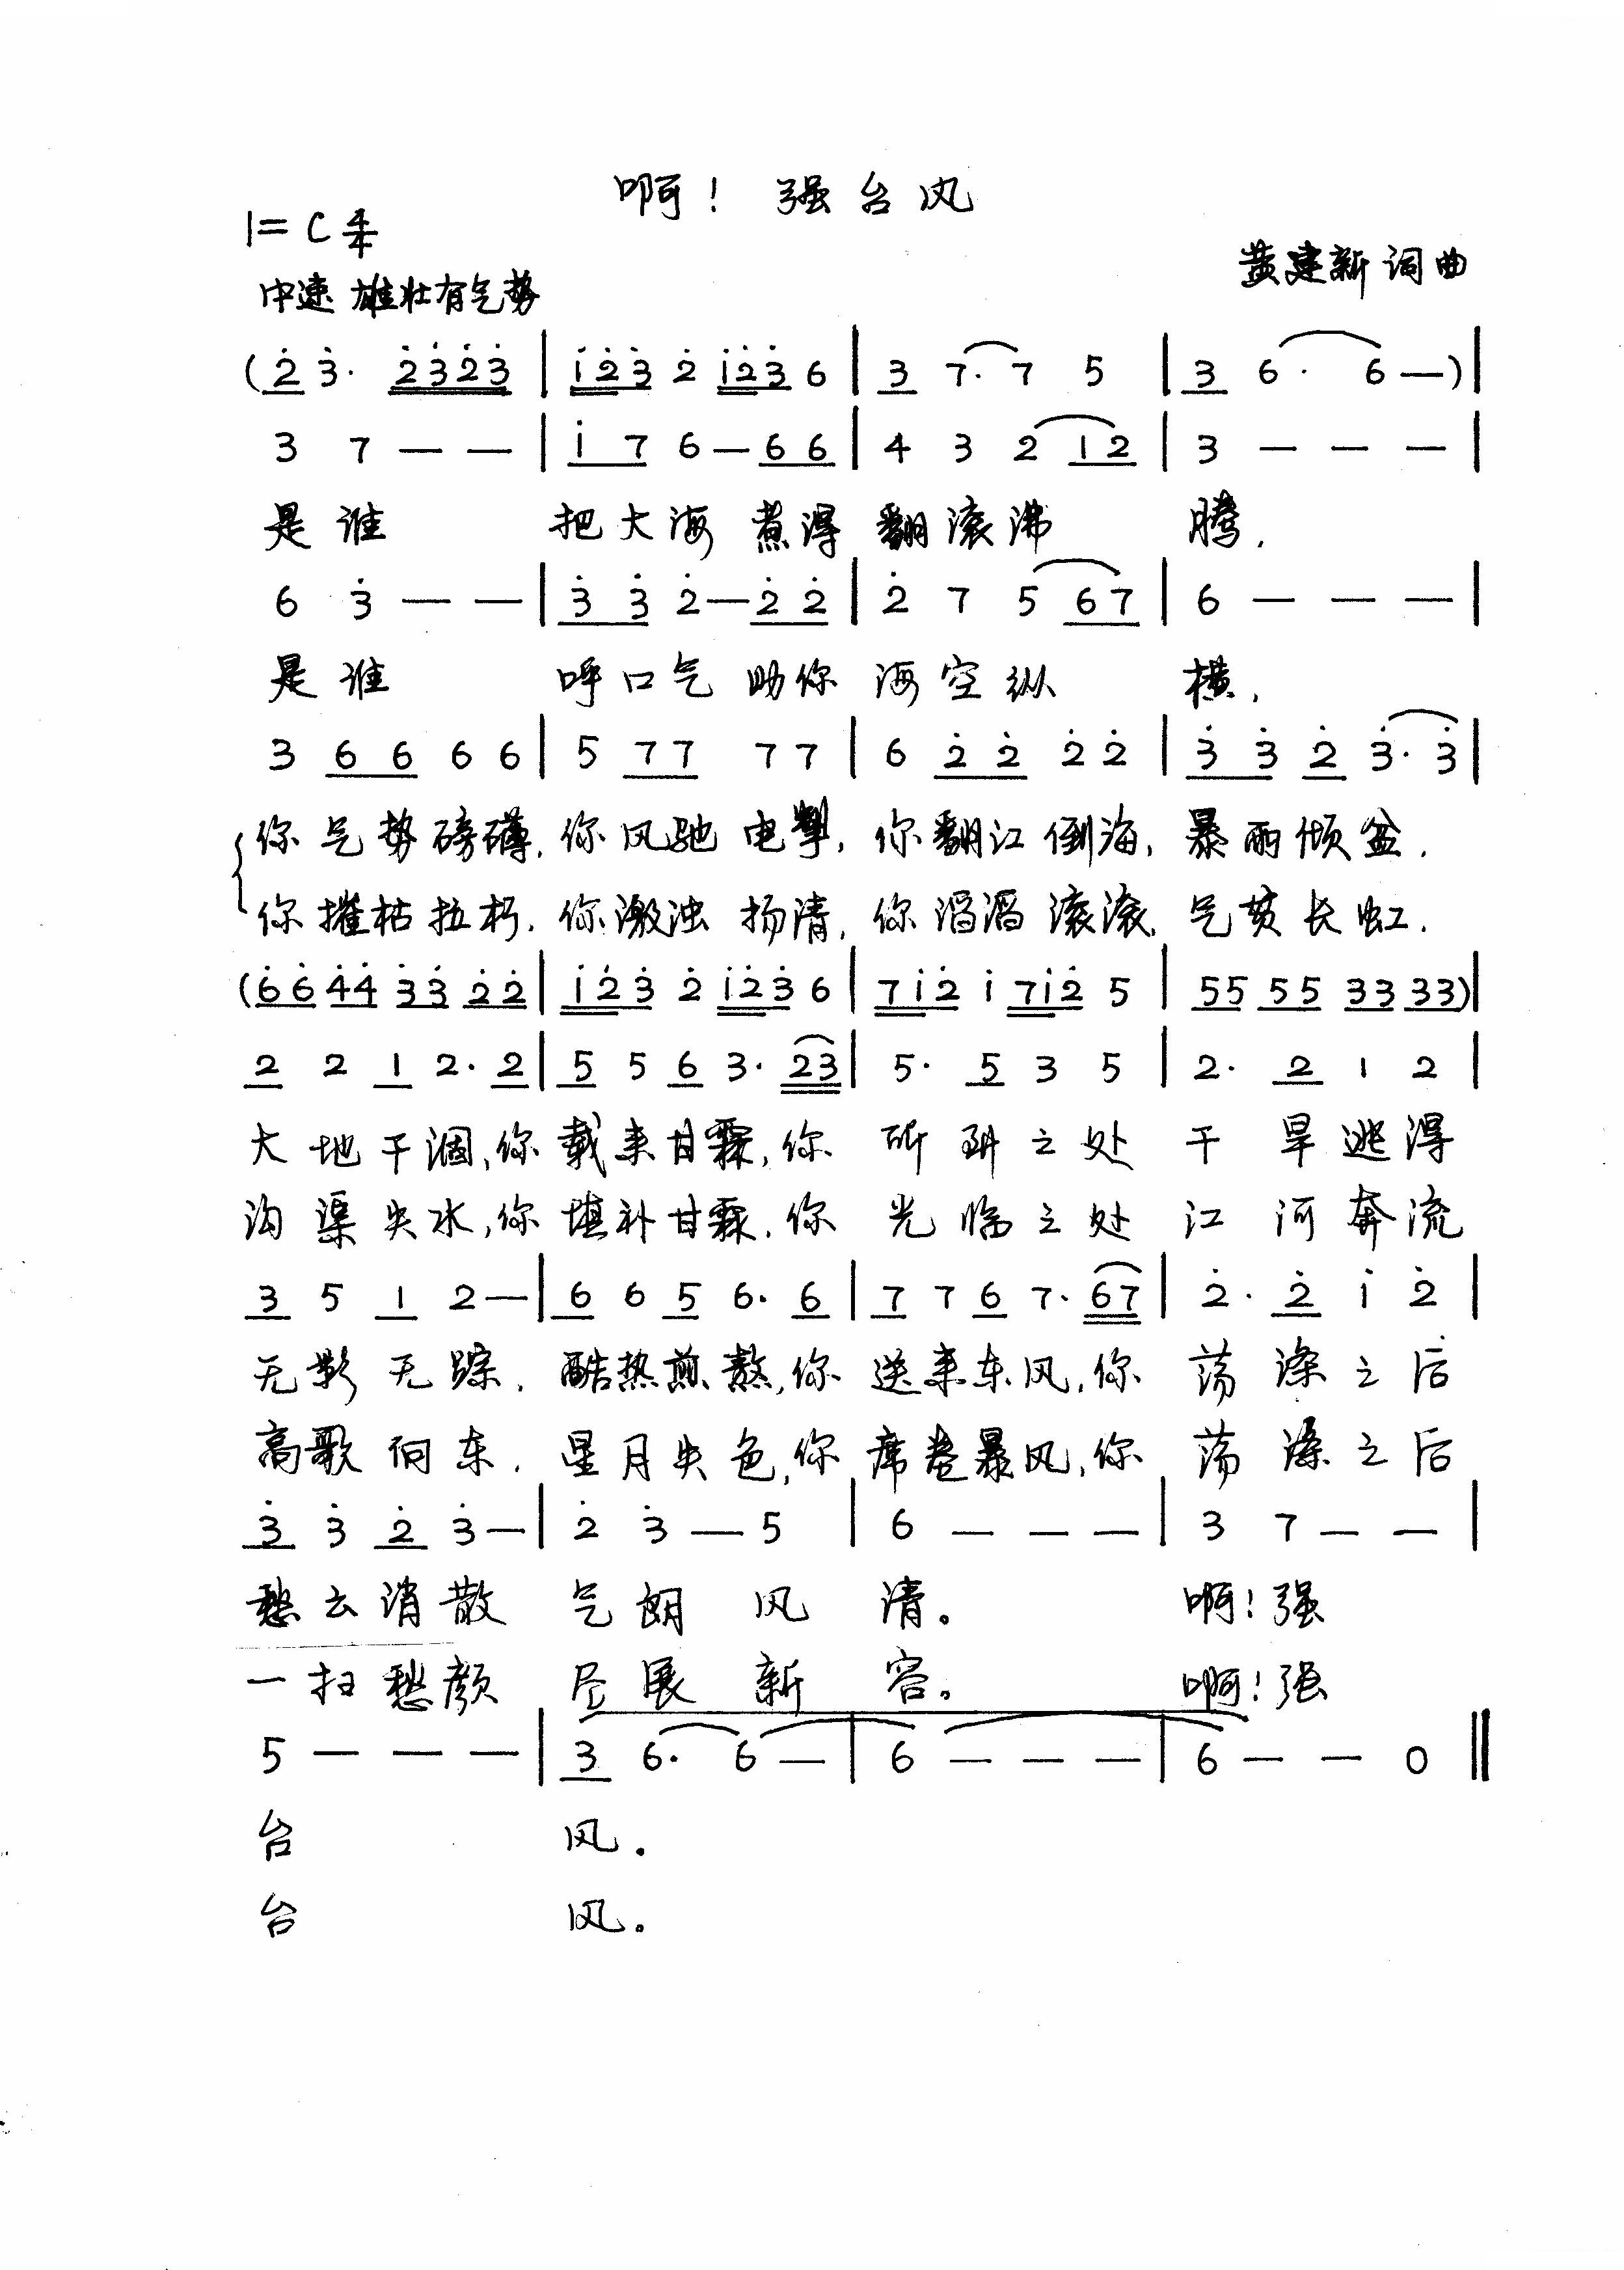 啊！强台风
1=C 4/4
黄建新 词曲
中速 雄壮有气势
(2̇ 3̇· 2̇3̇2̇3̇ | 1̇2̇3̇ 2̇ 1̇2̇3̇ 6 | 3 7· 7 5 | 3 6· 6 —) |
3 7 — — | 1̇ 7 6 — 6 6 | 4 3 2 1 2 | 3 — — — |
是谁 把大海煮得 翻滚沸 腾，
6 3̇ — — | 3̇ 3̇ 2̇ — 2̇ 2̇ | 2̇ 7 5 6 7 | 6 — — — |
是谁 呼口气 助你 海空纵 横，
3 6 6 6 6 | 5 7 7 7 7 | 6 2̇ 2̇ 2̇ 2̇ | 3̇ 3̇ 2̇ 3̇· 3̇ |
你气势磅礴，你风驰电掣，你翻江倒海，暴雨倾盆，
你摧枯拉朽，你激浊扬清，你滔滔滚滚，气贯长虹，
(6̇6̇ 4̇4̇ 3̇3̇ 2̇2̇ | 1̇2̇3̇ 2̇ 1̇2̇3̇ 6 | 71̇2̇ 1 71̇2̇ 5 | 55 55 33 33) |
2 2 1 2· 2 | 5 5 6 3· 23 | 5· 5 3 5 | 2· 2 1 2 |
大地干涸，你载来甘霖，你 所到之处 干旱逃得
沟渠失水，你填补甘霖，你 光临之处 江河奔流
3 5 1 2 — | 6 6 5 6· 6 | 7 7 6 7· 67 | 2̇· 2̇ 1̇ 2̇ |
无影无踪，酷热煎熬，你送来东风，你 荡涤之后
高歌向东，星月失色，你席卷暴风，你 荡涤之后
3̇ 3̇ 2̇ 3̇ — | 2̇ 3̇ — 5 | 6 — — — | 3 7 — — |
愁云消散 气朗风清。 啊！强
一扫愁颜 尽展新容。 啊！强
5 — — — | 3 6· 6 — | 6 — — — | 6 — — 0 ‖
台 风。
台 风。